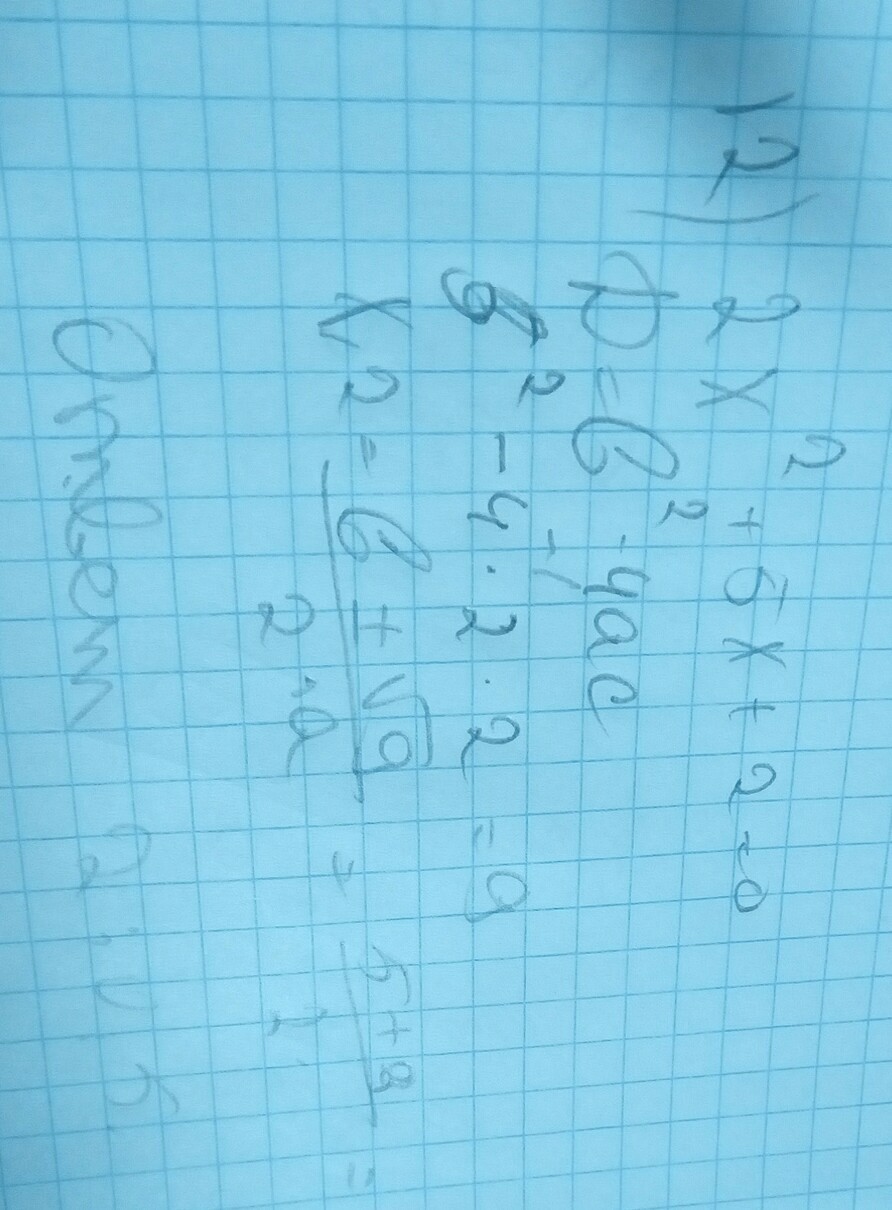 12) 2x² + 5x + 2 = 0
D = b² - 4ac
b² - 4 · 2 · 2 = 9
x2 = b ± √9 / 2 · a = 5 + 9 / 2 =
Ответ